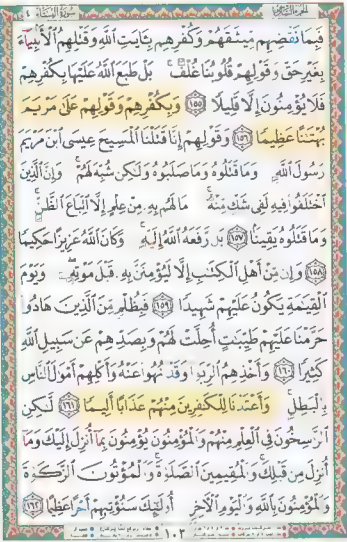 الجزء السادس سورة النساء ٤
فَبِمَا نَقْضِهِم مِّيثَٰقَهُمْ وَكُفْرِهِم بِـَٔايَٰتِ ٱللَّهِ وَقَتْلِهِمُ ٱلْأَنۢبِيَآءَ
بِغَيْرِ حَقٍّ وَقَوْلِهِمْ قُلُوبُنَا غُلْفٌۢ ۚ بَلْ طَبَعَ ٱللَّهُ عَلَيْهَا بِكُفْرِهِمْ
فَلَا يُؤْمِنُونَ إِلَّا قَلِيلًا ١٥٥ وَبِكُفْرِهِمْ وَقَوْلِهِمْ عَلَىٰ مَرْيَمَ
بُهْتَٰنًا عَظِيمًا ١٥٦ وَقَوْلِهِمْ إِنَّا قَتَلْنَا ٱلْمَسِيحَ عِيسَى ٱبْنَ مَرْيَمَ
رَسُولَ ٱللَّهِ وَمَا قَتَلُوهُ وَمَا صَلَبُوهُ وَلَٰكِن شُبِّهَ لَهُمْ ۚ وَإِنَّ ٱلَّذِينَ
ٱخْتَلَفُوا۟ فِيهِ لَفِى شَكٍّ مِّنْهُ ۚ مَا لَهُم بِهِۦ مِنْ عِلْمٍ إِلَّا ٱتِّبَاعَ ٱلظَّنِّ ۚ
وَمَا قَتَلُوهُ يَقِينًۢا ١٥٧ بَل رَّفَعَهُ ٱللَّهُ إِلَيْهِ ۚ وَكَانَ ٱللَّهُ عَزِيزًا حَكِيمًا
١٥٨ وَإِن مِّنْ أَهْلِ ٱلْكِتَٰبِ إِلَّا لَيُؤْمِنَنَّ بِهِۦ قَبْلَ مَوْتِهِۦ ۖ وَيَوْمَ
ٱلْقِيَٰمَةِ يَكُونُ عَلَيْهِمْ شَهِيدًا ١٥٩ فَبِظُلْمٍ مِّنَ ٱلَّذِينَ هَادُوا۟
حَرَّمْنَا عَلَيْهِمْ طَيِّبَٰتٍ أُحِلَّتْ لَهُمْ وَبِصَدِّهِمْ عَن سَبِيلِ ٱللَّهِ
كَثِيرًا ١٦٠ وَأَخْذِهِمُ ٱلرِّبَوٰا۟ وَقَدْ نُهُوا۟ عَنْهُ وَأَكْلِهِمْ أَمْوَٰلَ ٱلنَّاسِ
بِٱلْبَٰطِلِ ۚ وَأَعْتَدْنَا لِلْكَٰفِرِينَ مِنْهُمْ عَذَابًا أَلِيمًا ١٦١ لَّٰكِنِ
ٱلرَّٰسِخُونَ فِى ٱلْعِلْمِ مِنْهُمْ وَٱلْمُؤْمِنُونَ يُؤْمِنُونَ بِمَآ أُنزِلَ إِلَيْكَ وَمَآ
أُنزِلَ مِن قَبْلِكَ ۚ وَٱلْمُقِيمِينَ ٱلصَّلَوٰةَ ۚ وَٱلْمُؤْتُونَ ٱلزَّكَوٰةَ
وَٱلْمُؤْمِنُونَ بِٱللَّهِ وَٱلْيَوْمِ ٱلْءَاخِرِ أُو۟لَٰٓئِكَ سَنُؤْتِيهِمْ أَجْرًا عَظِيمًا ١٦٢
١٠٣